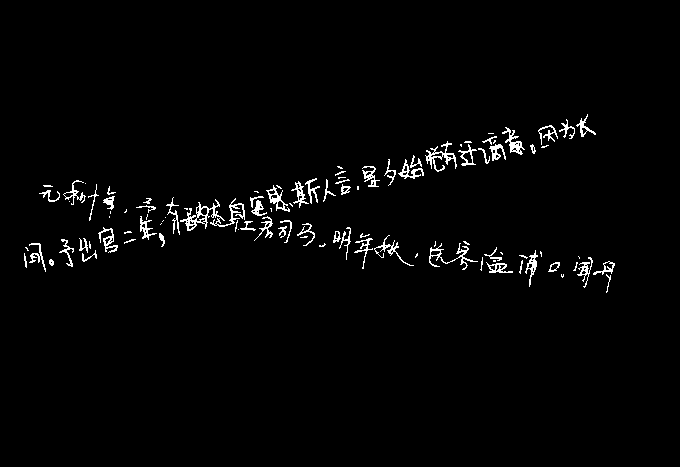 元和十年，予左郡司马。明年秋，送客湓浦口，闻舟
间。予出官二年，恬自安，感斯人言，是夕始觉有迁谪意。因为长